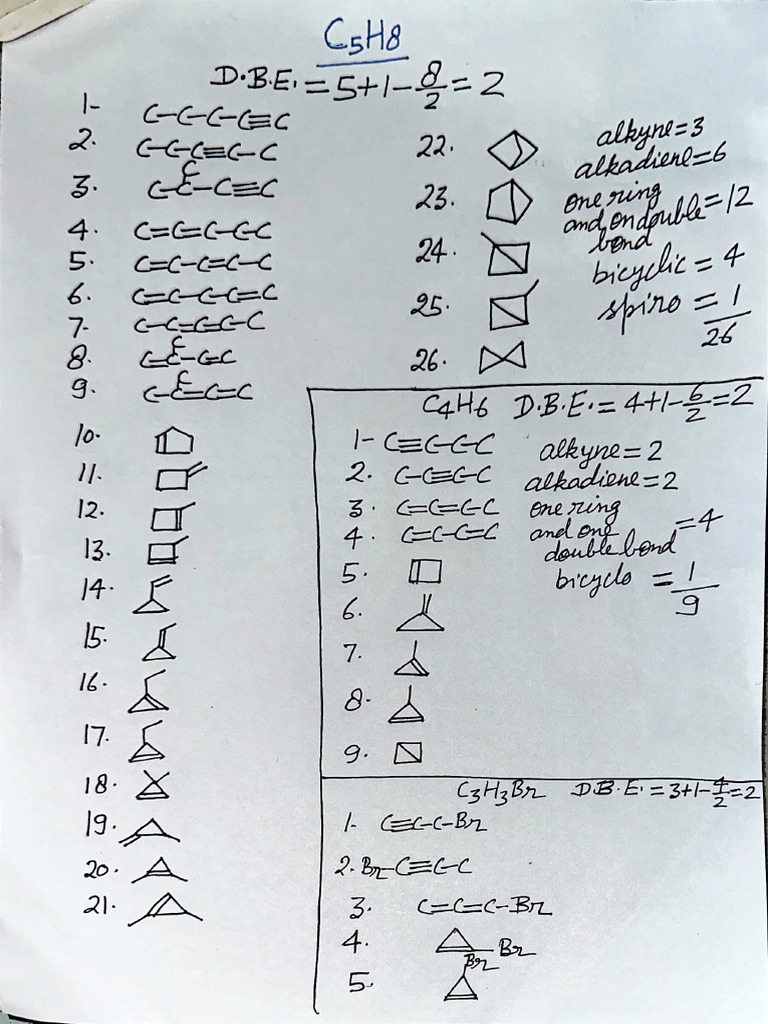 C5H8
D.B.E. = 5+1-8/2 = 2
1- C-C-C-C≡C
2. C-C-C≡C-C
3. C-C-C≡C
C
4. C=C=C-C-C
5. C=C-C=C-C
6. C=C-C-C=C
7. C-C=C=C-C
8. C=C-C=C
C
9. C-C=C=C
C
10.
11.
12.
13.
14.
15.
16.
17.
18.
19.
20.
21.
22.
23.
24.
25.
26.
alkyne = 3
alkadiene = 6
one ring
and on double = 12
bond
bicyclic = 4
spiro = 1
26
C4H6 D.B.E. = 4+1-6/2 = 2
1- C≡C-C-C
2. C-C≡C-C
3. C=C=C-C
4. C=C-C=C
5.
6.
7.
8.
9.
alkyne = 2
alkadiene = 2
one ring
and one = 4
double bond
bicyclo = 1
9
C3H3Br D.B.E. = 3+1-4/2 = 2
1. C≡C-C-Br
2. Br-C≡C-C
3. C=C=C-Br
4. Br
5. Br